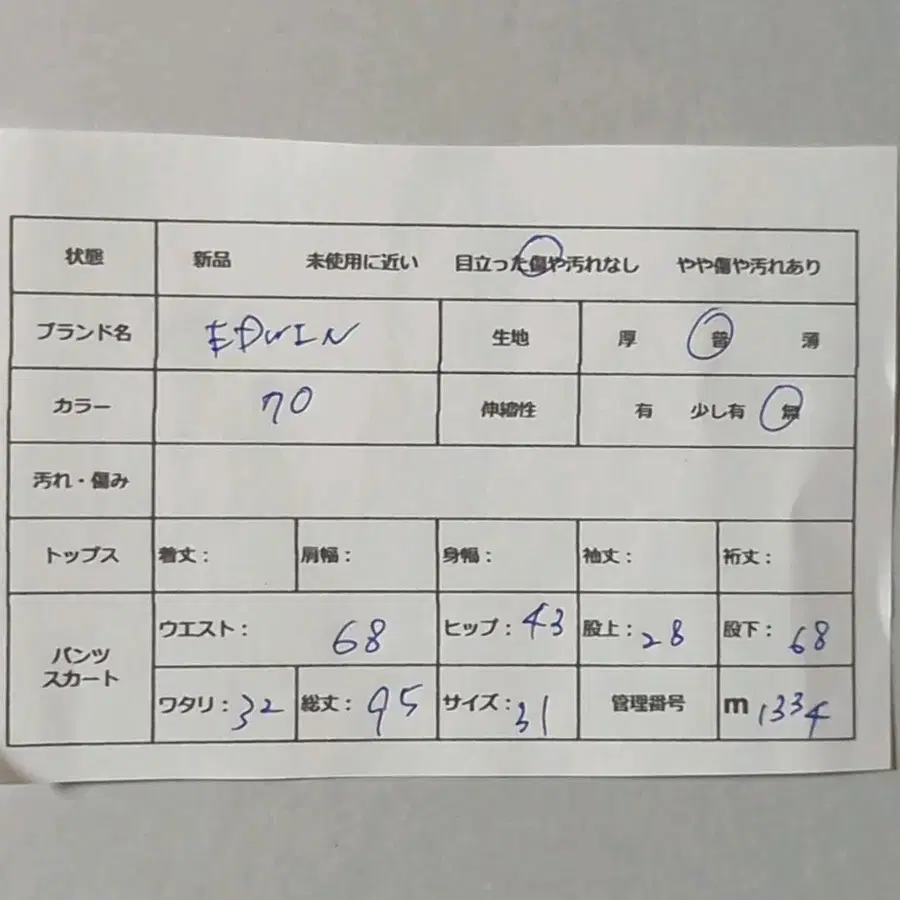 状態 新品 未使用に近い 目立った傷や汚れなし やや傷や汚れあり
ブランド名 EDWIN 生地 厚 普 薄
カラー 70 伸縮性 有 少し有 無
汚れ・傷み
トップス 着丈: 肩幅: 身幅: 袖丈: 裄丈:
パンツ
スカート
ウエスト: 68 ヒップ: 43 股上: 28 股下: 68
ワタリ: 32 総丈: 95 サイズ: 31 管理番号 m 1334